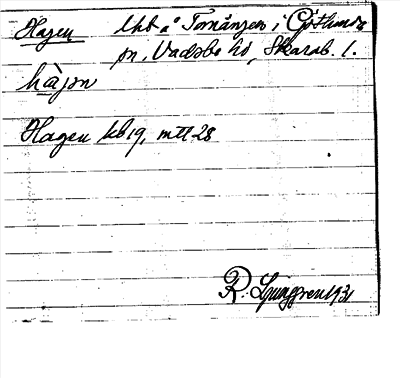 Hagen lhb å Tornängen i Götlunda
sn, Vadsbo hd, Skarab. l.
hàjεn
Hagen kb 19, mtl 28
R. Ljunggren 1931